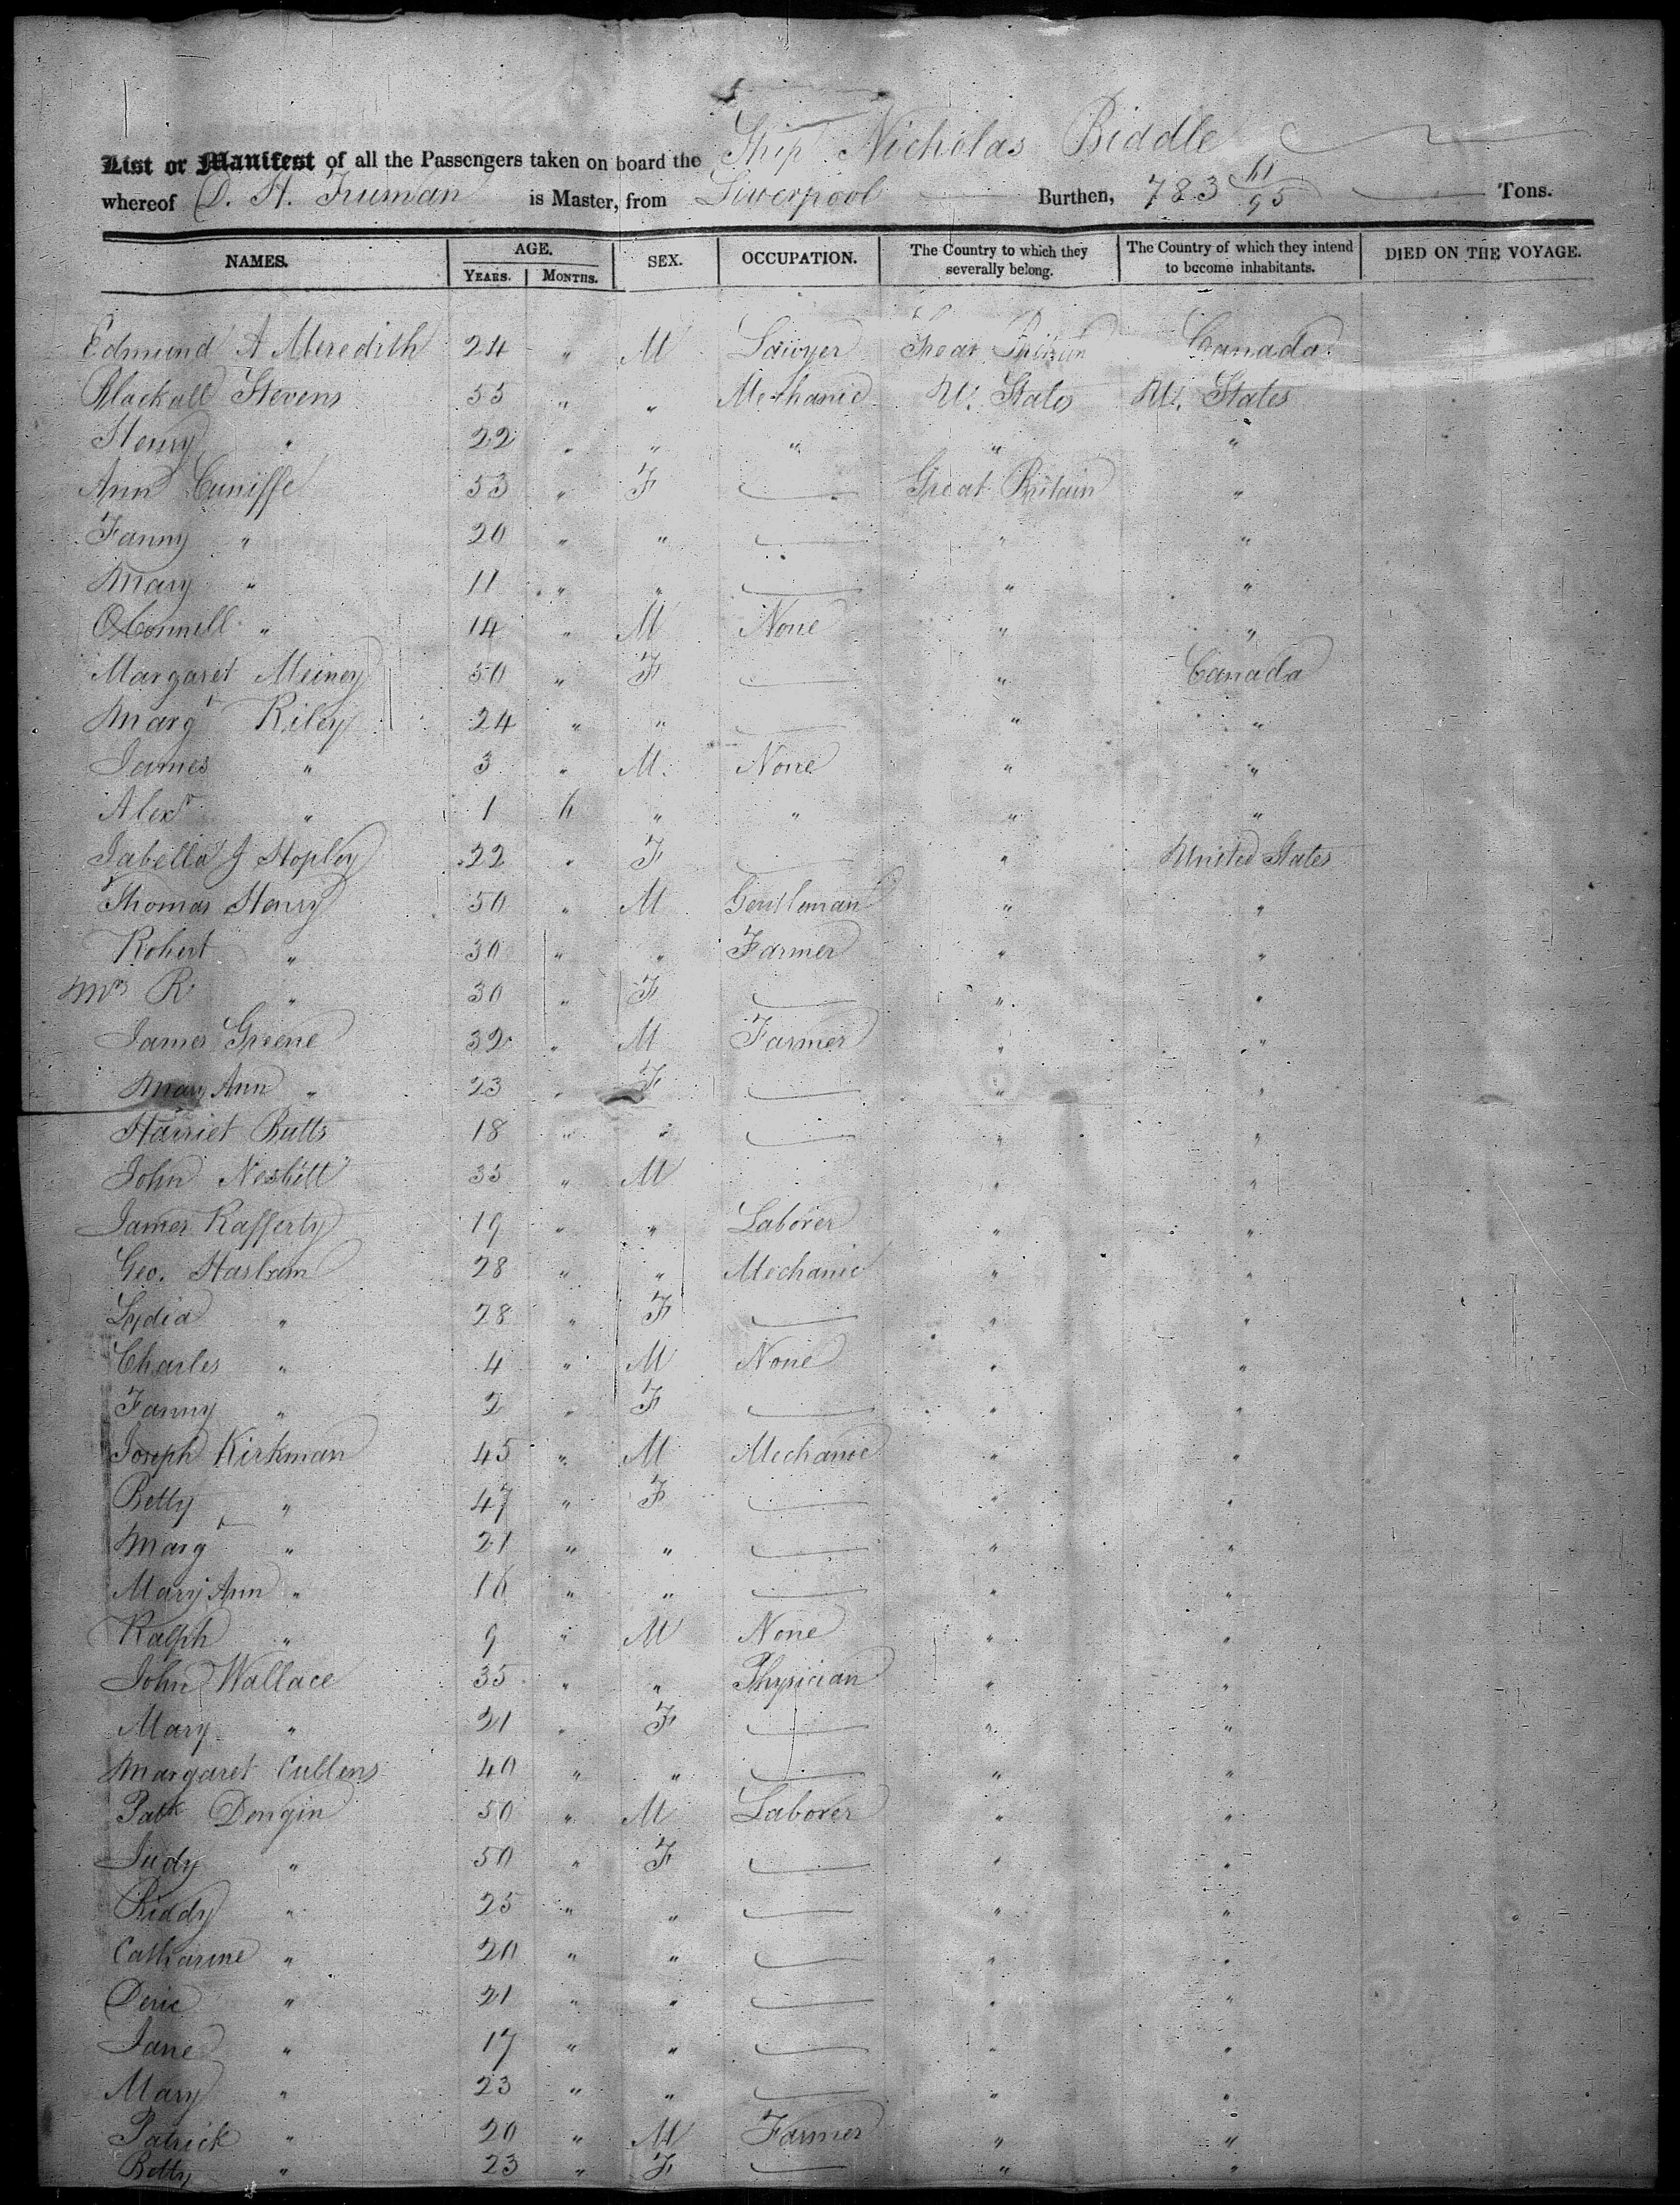 List or Manifest of all the Passengers taken on board the Ship Nicholas Biddle
whereof D. H. Truman is Master, from Liverpool Burthen, 783 61/95 Tons.
NAMES. AGE. YEARS. MONTHS. SEX. OCCUPATION. The Country to which they severally belong. The Country of which they intend to become inhabitants. DIED ON THE VOYAGE.
Edmund A Meredith 24 " M Lawyer Great Britain Canada
Blackall Stevens 55 " " Mechanic U. States U. States
Henry " 22 " " " " "
Ann Cuniffe 53 " F Great Britain "
Fanny " 20 " " " "
Mary " 11 " " " "
OConnell " 14 " M None " "
Margaret Meiney 50 " F " Canada
Margt Riley 24 " " " "
James " 3 " M. None " "
Alexr " 1 6 " " " "
Isabella J Hopley 22 " F " United States
Thomas Henry 50 " M Gentleman " "
Robert " 30 " " Farmer " "
Mrs R " 30 " F " "
James Greene 32 " M Farmer " "
Mary Ann " 23 " F " "
Harriet Butts 18 " " " "
John Nesbitt 35 " M " "
James Rafferty 19 " " Laborer " "
Geo. Haslam 28 " " Mechanic " "
Lydia " 28 " F " "
Charles " 4 " M None " "
Fanny " 2 " F " "
Joseph Kirkman 45 " M Mechanic " "
Betty " 47 " F " "
Margt " 21 " " " "
Mary Ann " 16 " " " "
Ralph " 9 " M None " "
John Wallace 35 " " Physician " "
Mary " 21 " F " "
Margaret Cullens 40 " " " "
Patk Dongin 50 " M Laborer " "
Judy " 50 " F " "
Biddy " 25 " " " "
Catharine " 20 " " " "
" 21 " " " "
Jane " 17 " " " "
Mary " 23 " " " "
Patrick " 20 " M Farmer " "
Betty " 23 " F " "